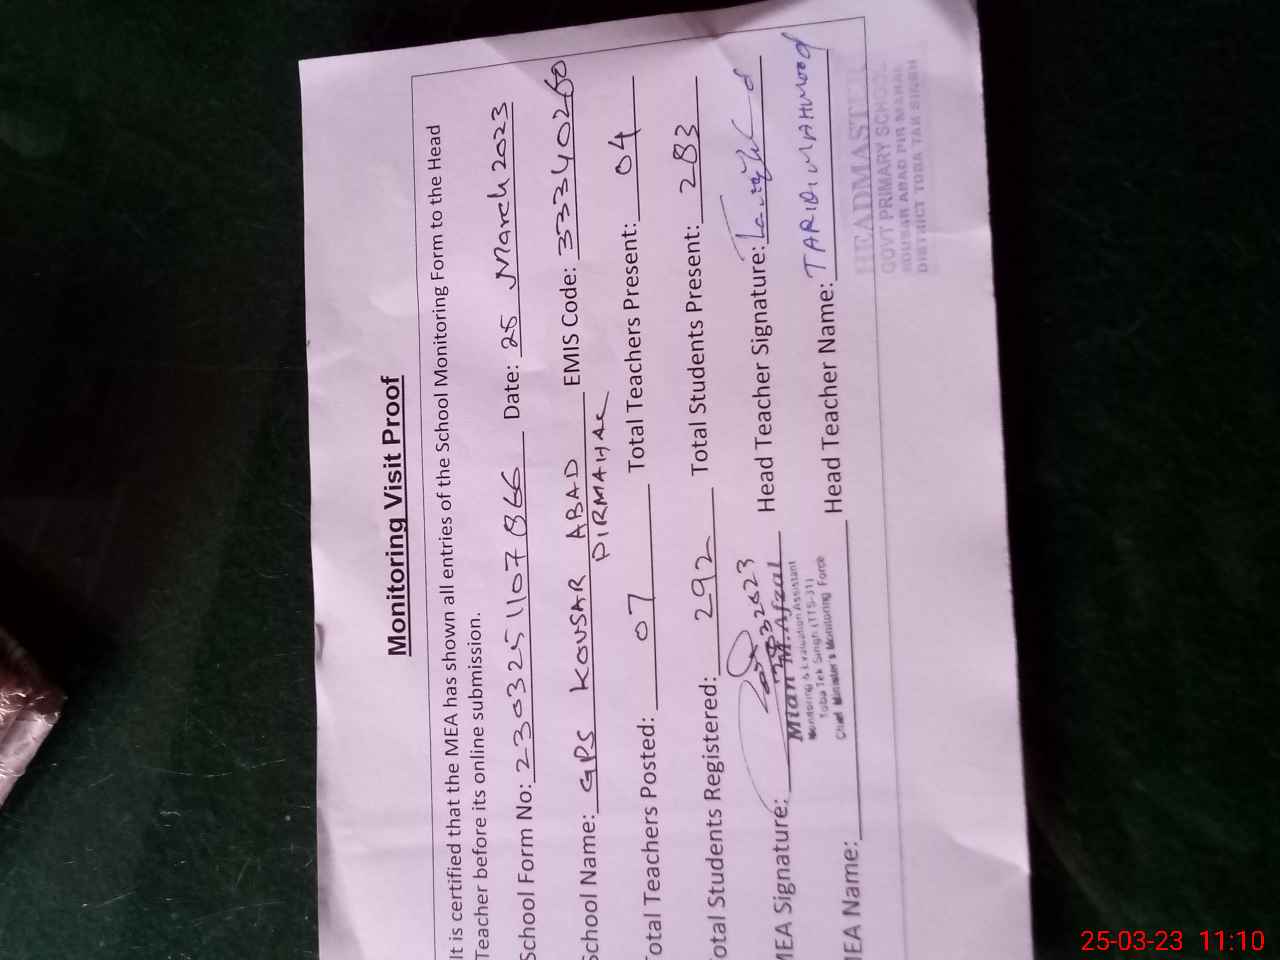 Monitoring Visit Proof
It is certified that the MEA has shown all entries of the School Monitoring Form to the Head
Teacher before its online submission.
School Form No: 2303251107866 Date: 25 March 2023
School Name: GPS KOUSAR ABAD EMIS Code: 33340260
PIRMAHAL
Total Teachers Posted: 07 Total Teachers Present: 04
Total Students Registered: 292 Total Students Present: 283
MEA Signature: Head Teacher Signature:
Mian M. Afzal
Monitoring & Evaluation Assistant
Toba Tek Singh (TTS-31)
Chief Minister's Monitoring Force
MEA Name: Head Teacher Name: TARIQ MAHMOOD
HEADMASTER
GOVT PRIMARY SCHOOL
KOUSAR ABAD PIR MAHAL
DISTRICT TOBA TAK SINGH
25-03-23 11:10